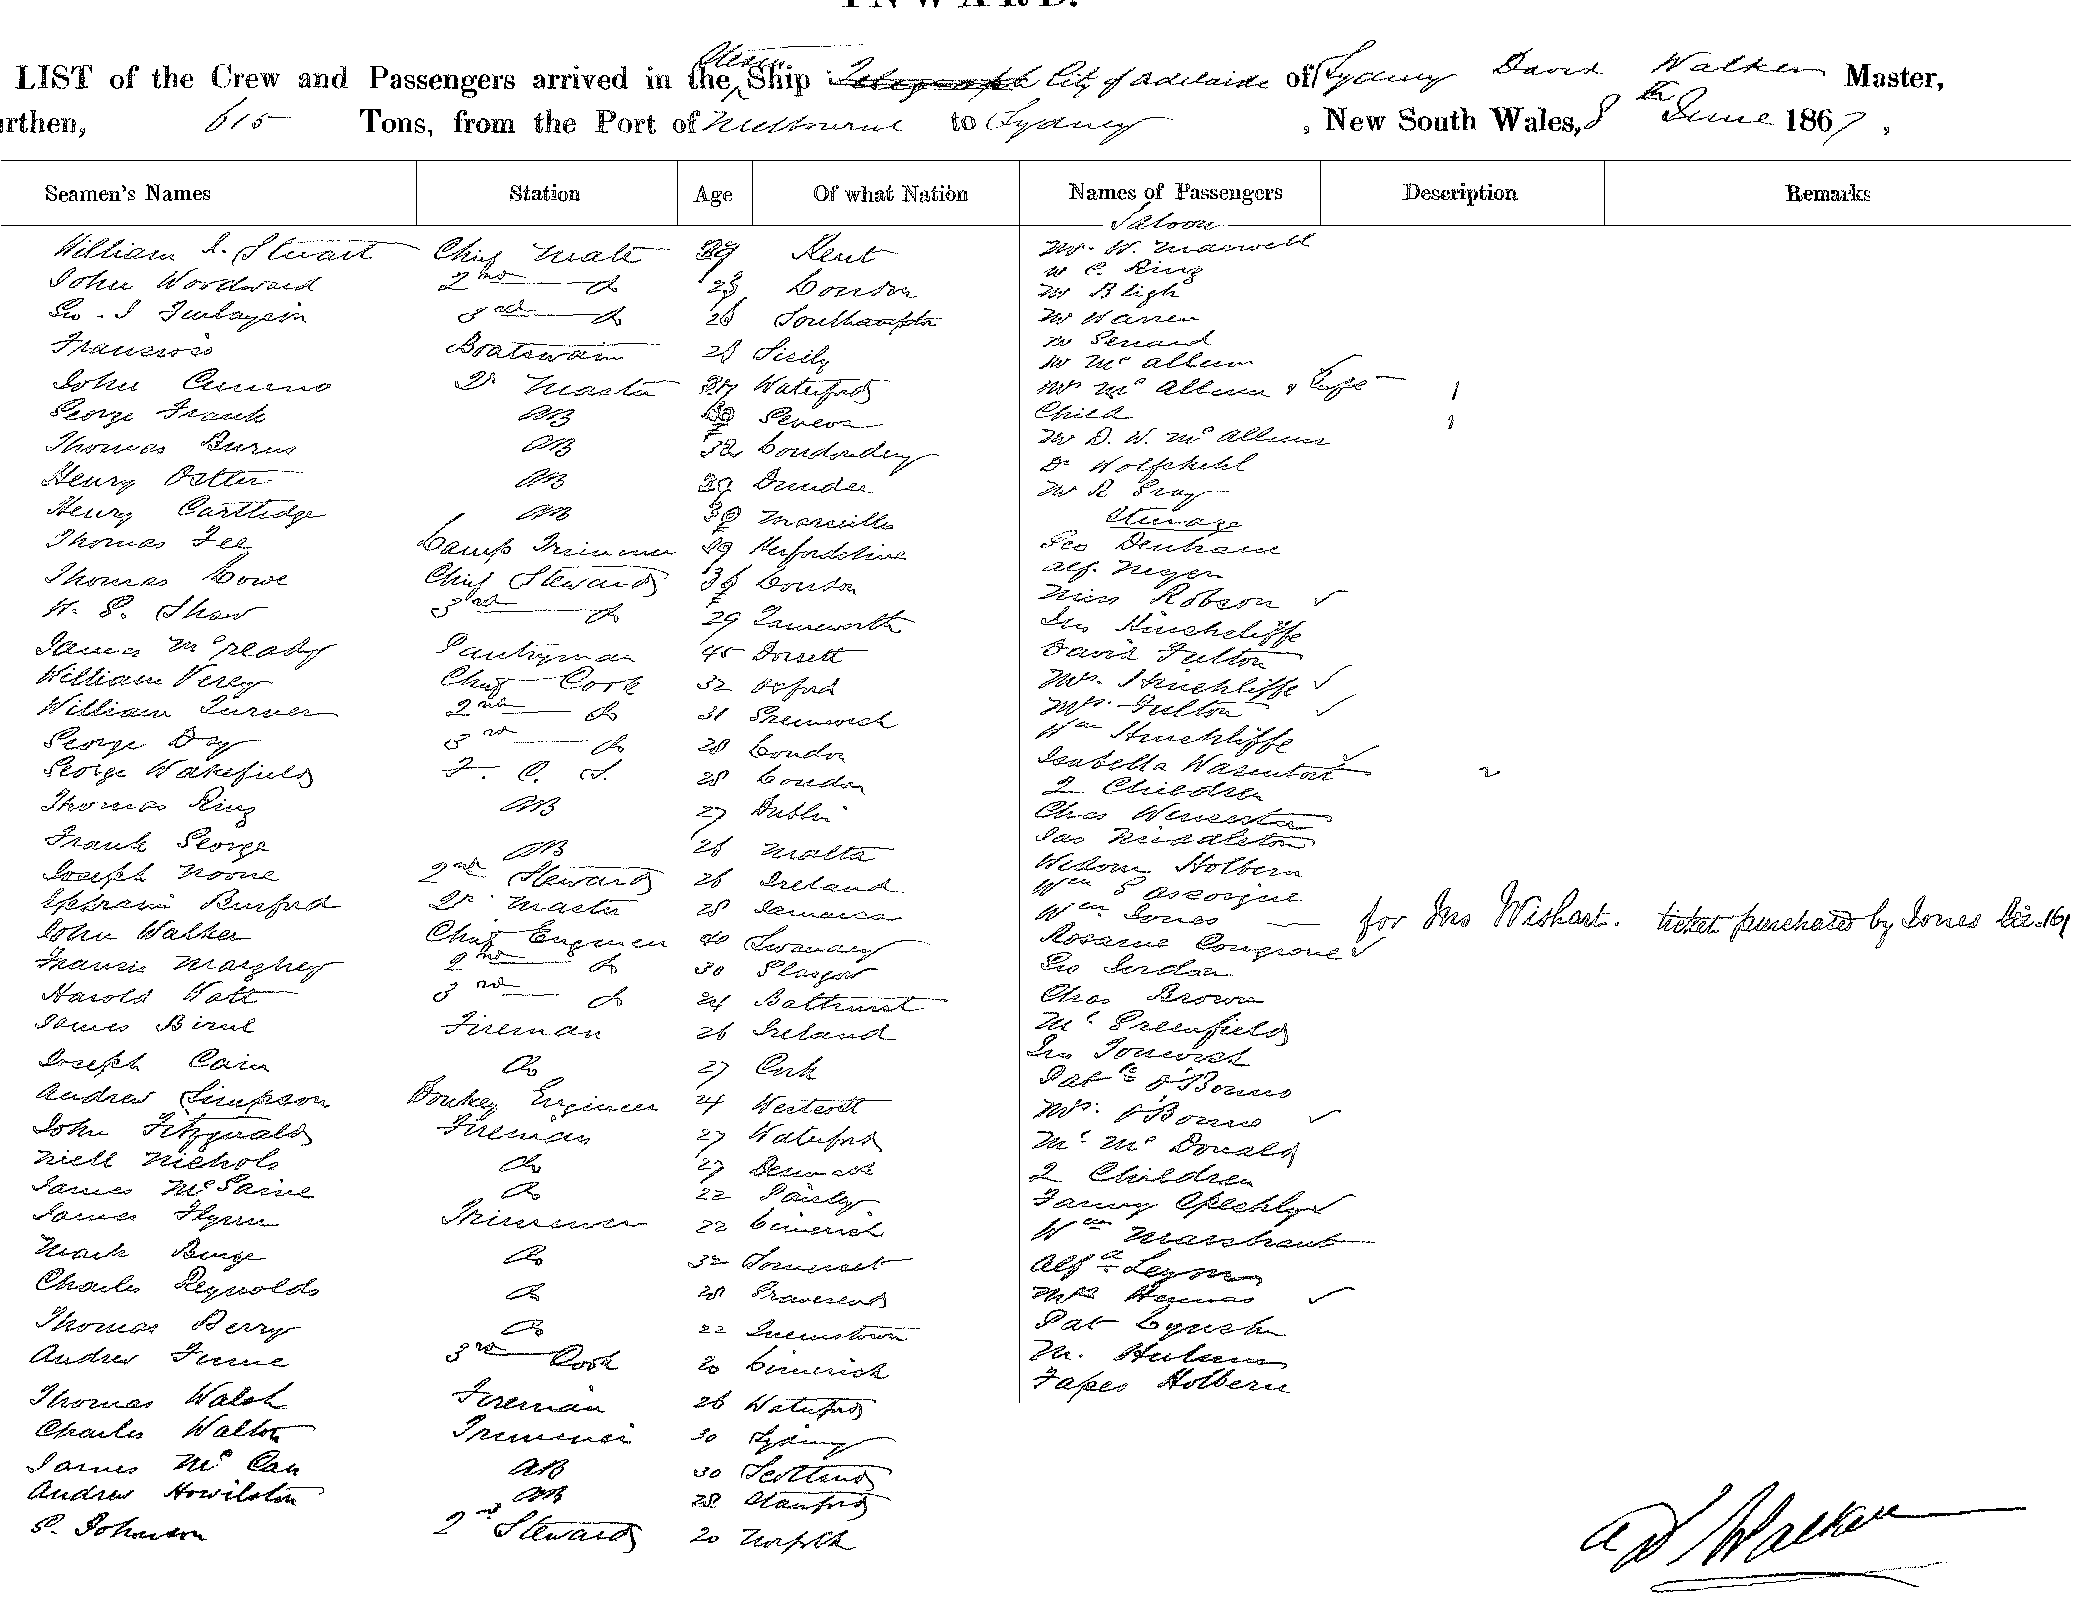 INWARD.
LIST of the Crew and Passengers arrived in the Ship City of Adelaide of Sydney David Walker Master,
rthen, 615 Tons, from the Port of Melbourne to Sydney , New South Wales, 8th June 1867 ,
Seamen's Names Station Age Of what Nation Names of Passengers Description Remarks
Saloon
William Stuart Chief Mate 39 Kent
John Woodward 2nd do 23 London
3rd do 26 Southampton
Boatswain 28 Sicily
John Master Waterford
George Frank AB
Thomas Burns AB 32 Londonderry
Henry AB 29 Dundee
Henry Cartlidge AB Marseilles
Thomas Lee Lamp Trimmer 39 Herfordshire
Thomas Lowe Chief Steward 36 London
H. S. Shaw 3rd do 29 Tamworth
James Mc Pantryman 45 Dorsett
William Verey Chief Cook 32 Oxford
William Turner 2nd do 31 Greenwich
George Day 3rd do 28 London
George Wakefield F. C. S. 28 London
Thomas King AB 27 Dublin
Frank George AB 26 Malta
Joseph Noone 2nd Steward 26 Ireland
Ephraim Burford Qr Master 28 Jamaica
John Walker Chief Engineer 40 Swansea
Francis 2nd do 30 Glasgow
Harold Watt 3rd do 24 Bathurst
James Fireman 26 Ireland
Joseph Cain do 27 Cork
Andrew Simpson Donkey Engineer 24
John Fitzgerald Fireman 27 Waterford
Niell Nichols do 27 Denmark
James do 22 Paisley
James Flynn Trimmer 22 Limerick
Mark do 32 Somerset
Charles Reynolds do 28 Gravesend
Thomas Berry do 22 Queenstown
Andrew 3rd Cook 20 Limerick
Thomas Walsh Fireman 26 Waterford
Charles Walton Trimmer 30 Sydney
James Mc Can AB 30 Scotland
Andrew Howilston AB 28 Stanford
Johnson 2nd Steward 20 Norfolk
Mr. W. Maxwell
" C. King
Mr Bligh
Mr Warren
Mr
Mr Mc Allum
Mrs Mc Allum & 1
Child 1
Mr D. W. Mc Allum
Dr Wolfskehl
Mr R Gray
Steerage
Geo Denham
Alf. Meyer
Miss Robson ✓
Jno Hinchcliffe
David Fulton
Mrs. Hinchliffe ✓
Mrs. Fulton ✓
Wm Hinchliffe
Isabella ✓ 2
2 Children
Chas
Jas Middleton
Holbern
Wm Gascoigne
Wm Jones — for Mrs Wishart. ticket purchased by Jones
Rosanne ✓
Geo Jordan
Chas Brown
Mr Greenfield
Jno
Patk
Mrs. ✓
Mr Mc Donald
2 Children
Fanny ✓
Wm Marshant
Alfd
Mrs ✓
Pat Lynch
M.
Holbern
A D Walker